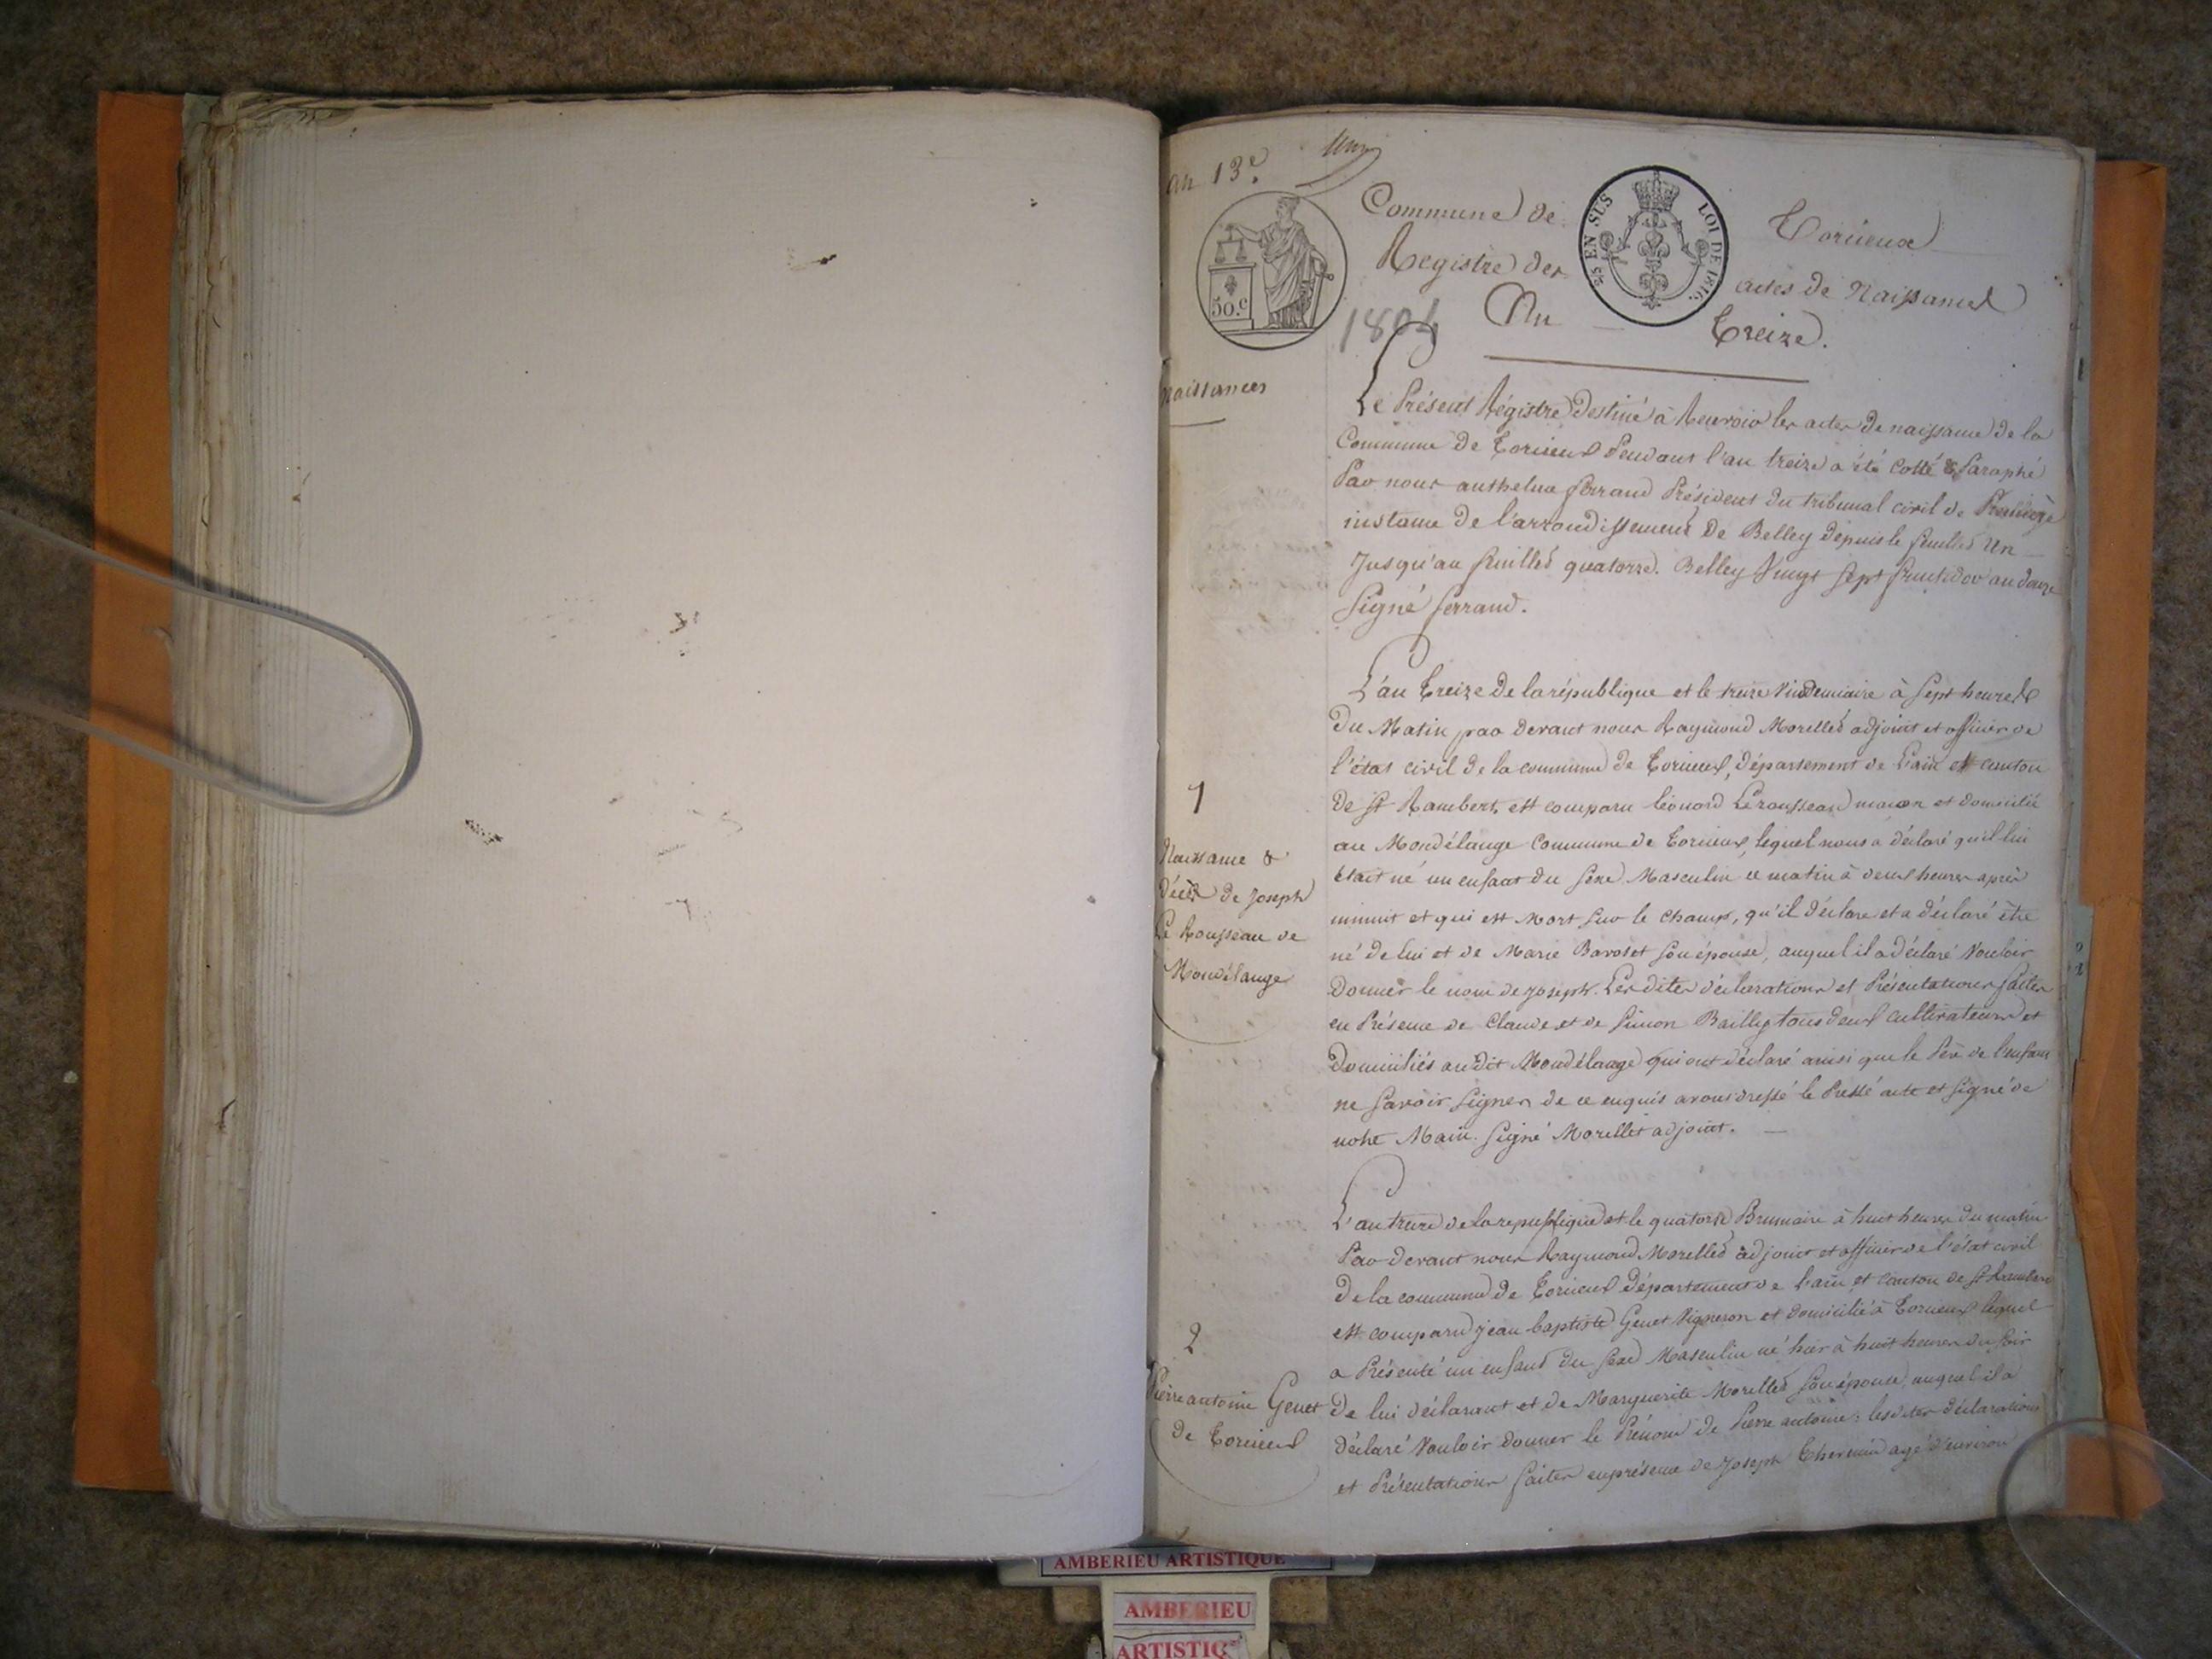 an 13e.
Un
Commune de Torcieux
Registre des actes de Naissances
An Treize.
1804
50.c
2/5 EN SUS LOI DE 1816.
naissances
Le Présent Régistre Destiné à Recevoir les actes de naissance de la
Commune de Torcieux Pendant l'an treize a été Cotté & Paraphé
Par nous anthelme ferrand Président du tribunal civil de Première
instance de l'arrondissement de Belley depuis le feuillet Un
Jusqu'au feuillet quatorze. Belley Vingt Sept fructidor an douze
Signé ferrand.
1
Naissance &
décès de Joseph
Le Rousseau de
Mondélange
L'an Treize de la république et le treize Vindemiaire à Sept heures
Du Matin par devant nous Raymond Morellet adjoint et officier de
l'état civil de la commune de Torcieux, département de L'ain et canton
de St Rambert, est comparu léonard Lerousseau maçon et domicilié
au Mondélange Commune de Torcieux, lequel nous a déclaré qu'il lui
était né un enfant du sexe Masculin ce matin à deux heures après
minuit et qui est Mort sur le champ, qu'il déclare et a déclaré être
né de lui et de Marie Baroset son épouse, auquel il a déclaré Vouloir
Donner le nom de Joseph. Les dites déclarations et Présentations faites
en Présence de Claude et de Simon Bailly tous deux cultivateurs et
Domiciliés audit Mondélange qui ont déclaré ainsi que le Père de l'enfant
ne Savoir Signer de ce enquis avons dressé le Presté acte et Signé de
notre Main. Signé Morellet adjoint.
2
Pierre antoine Genet
de Torcieux
L'an treize de la republique et le quatorze Brumaire à huit heures du matin
Par devant nous Raymond Morellet adjoint et officier de l'état civil
de la commune de Torcieux Département de l'ain et canton de St Rambert
est comparu jean baptiste Genet Vigneron et domicilié à Torcieux lequel
a Présenté un enfant du Sexe Masculin né hier à huit heures du soir
De lui déclarant et de Marguerite Morellet son épouse, auquel il a
déclaré Vouloir donner le Prénom de Pierre antoine : les dites déclarations
et Présentations faites en présence de Joseph Thevenin agé d'environ
AMBERIEU ARTISTIQUE
AMBERIEU
ARTISTIQ